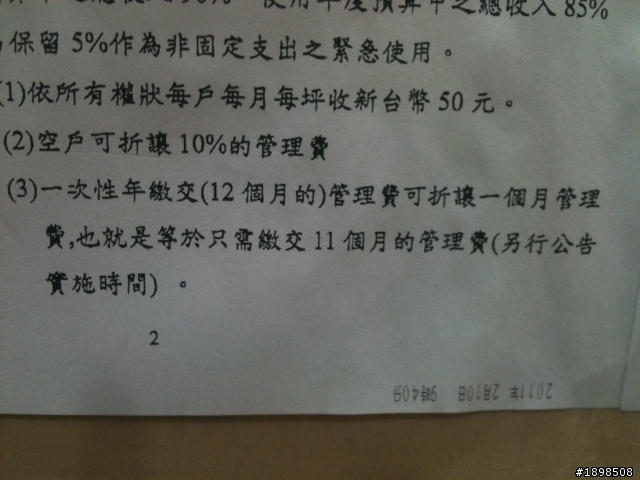 使用年度預算中之總收入 85%
保留 5%作為非固定支出之緊急使用。
(1)依所有權狀每戶每月每坪收新台幣 50 元。
(2)空戶可折讓 10%的管理費
(3)一次性年繳交(12 個月的)管理費可折讓一個月管理
費,也就是等於只需繳交 11 個月的管理費(另行公告
實施時間) 。
2
2011年 2月10日 9時40分
#1898508